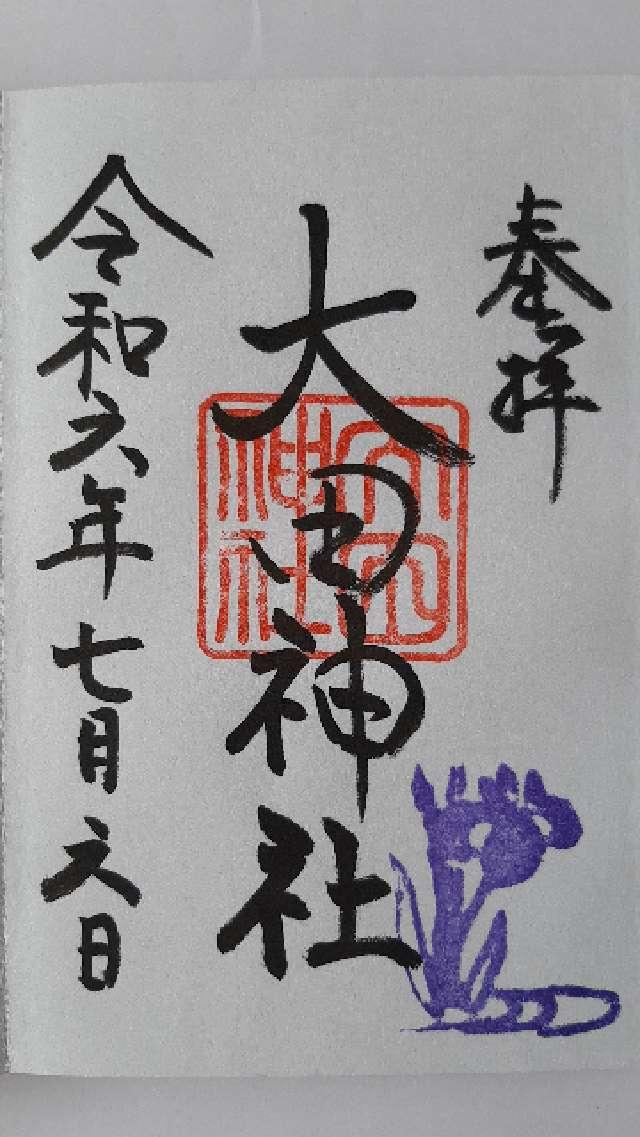 奉拝
大田神社
令和六年七月六日